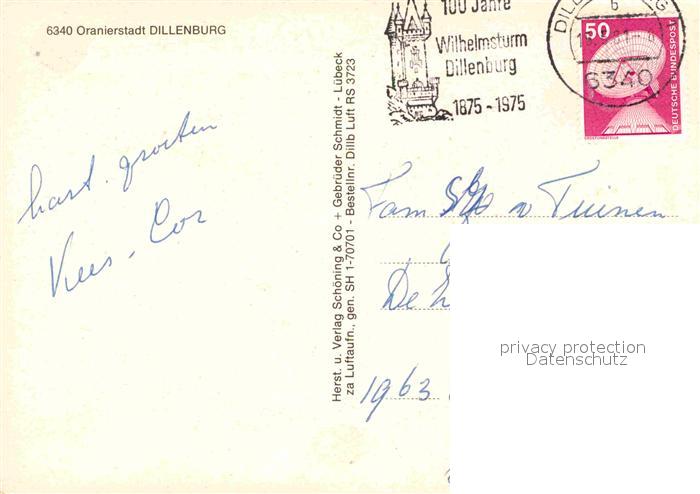 6340 Oranierstadt DILLENBURG
100 Jahre
Wilhelmsturm
Dillenburg
1875 - 1975
DILLENBURG
6340
50
DEUTSCHE BUNDESPOST
hart. groeten
Kees - Cor
Herst. u. Verlag Schöning & Co + Gebrüder Schmidt - Lübeck
za Luftaufn., gen. SH 1-70701 - Bestellnr. Dillb Luft RS 3723
Fam v Tuinen
De
1963
privacy protection
Datenschutz